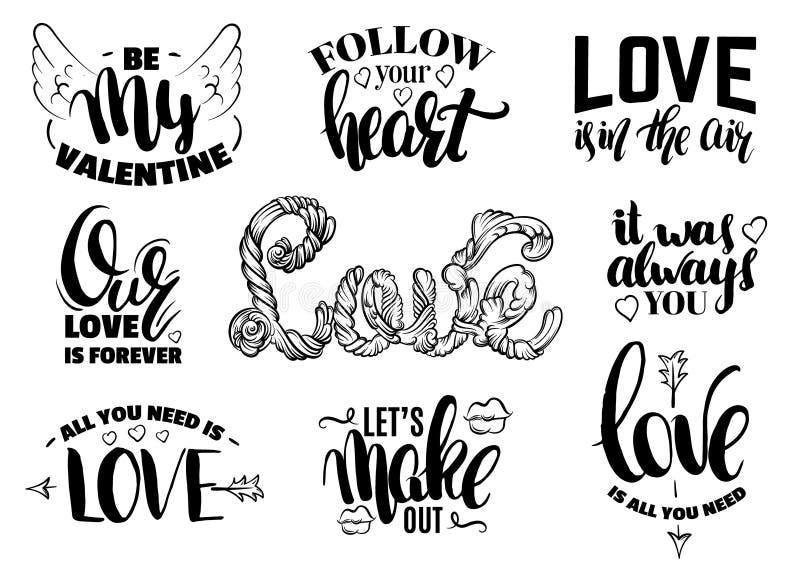 BE
My
VALENTINE
FOLLOW
your
heart
LOVE
is in the air
Our
LOVE
IS FOREVER
Love
it was
always
YOU
ALL YOU NEED IS
LOVE
LET'S
Make
OUT
love
IS ALL YOU NEED